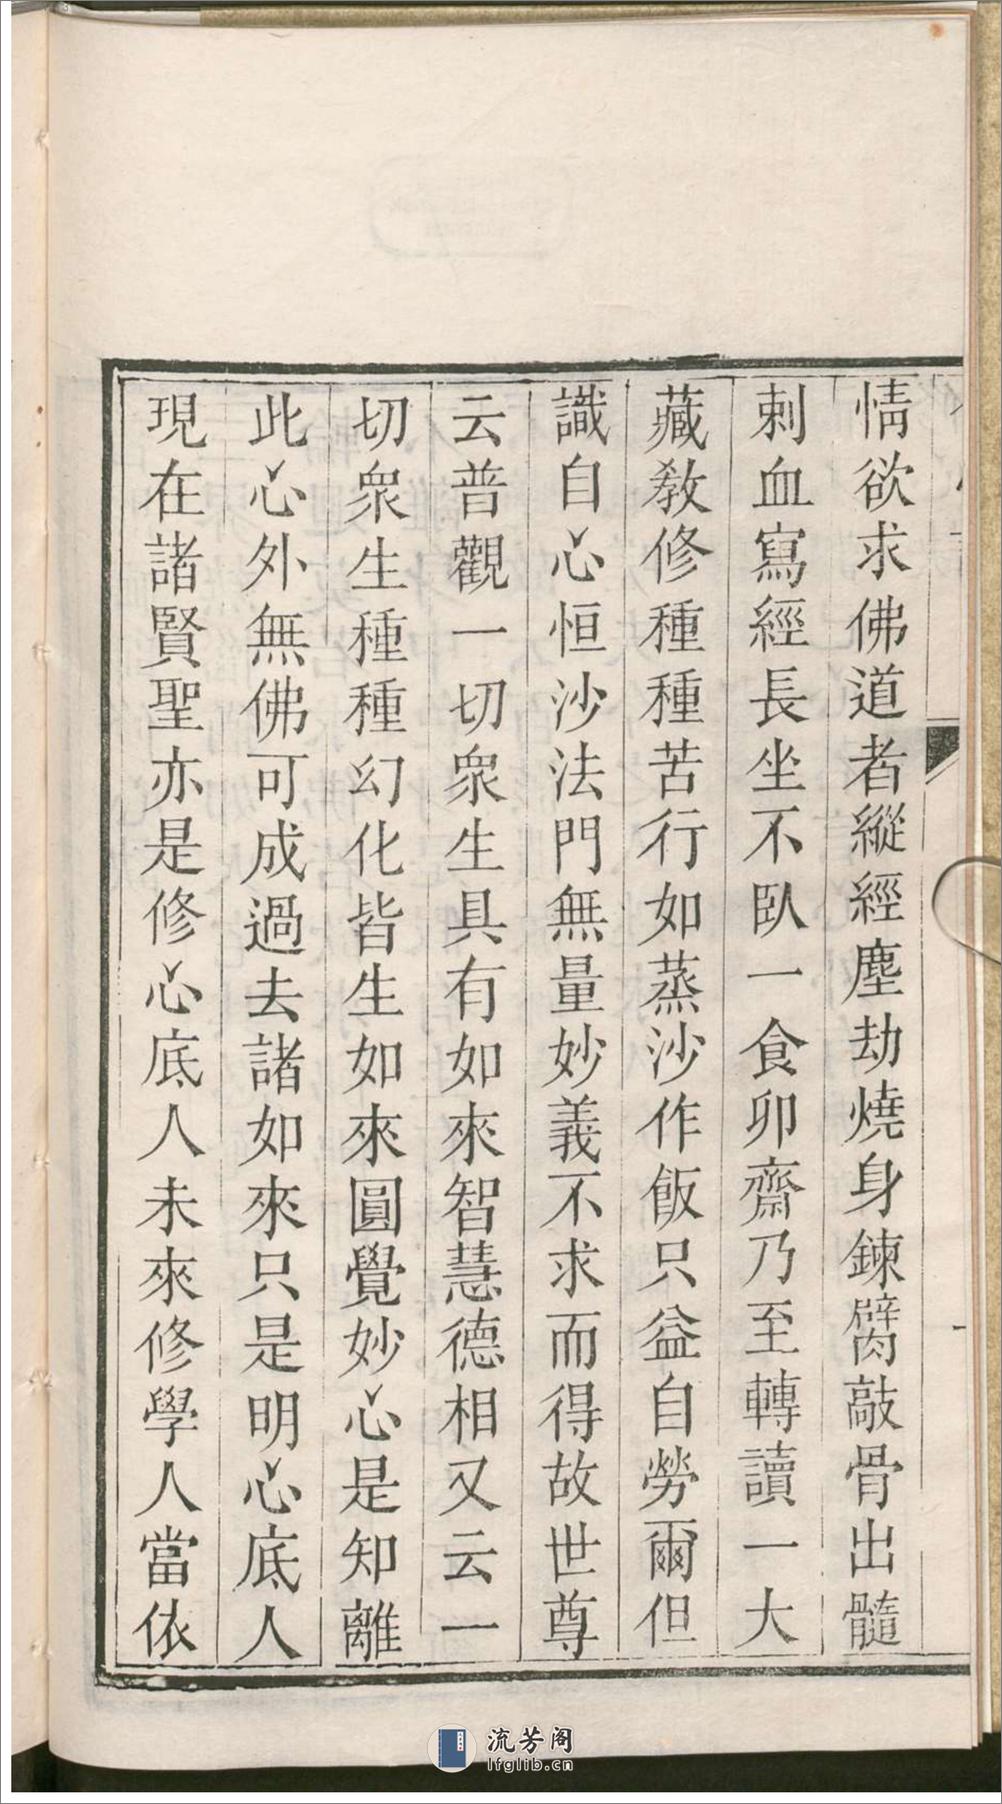 情欲求佛道者縱經塵劫燒身鍊臂敲骨出髓
刺血寫經長坐不臥一食卯齋乃至轉讀一大
藏教修種種苦行如蒸沙作飯只益自勞爾但
識自心恒沙法門無量妙義不求而得故世尊
云普觀一切衆生具有如來智慧德相又云一
切衆生種種幻化皆生如來圓覺妙心是知離
此心外無佛可成過去諸如來只是明心底人
現在諸賢聖亦是修心底人未來修學人當依
流芳阁
lfglib.cn